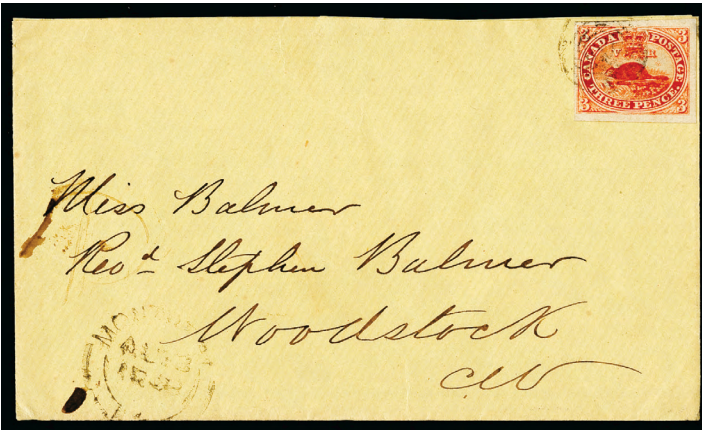 CANADA POSTAGE
3 3
THREE PENCE
3 3
Miss Balmer
Revd Stephen Balmer
Woodstock
CW
MONTREAL